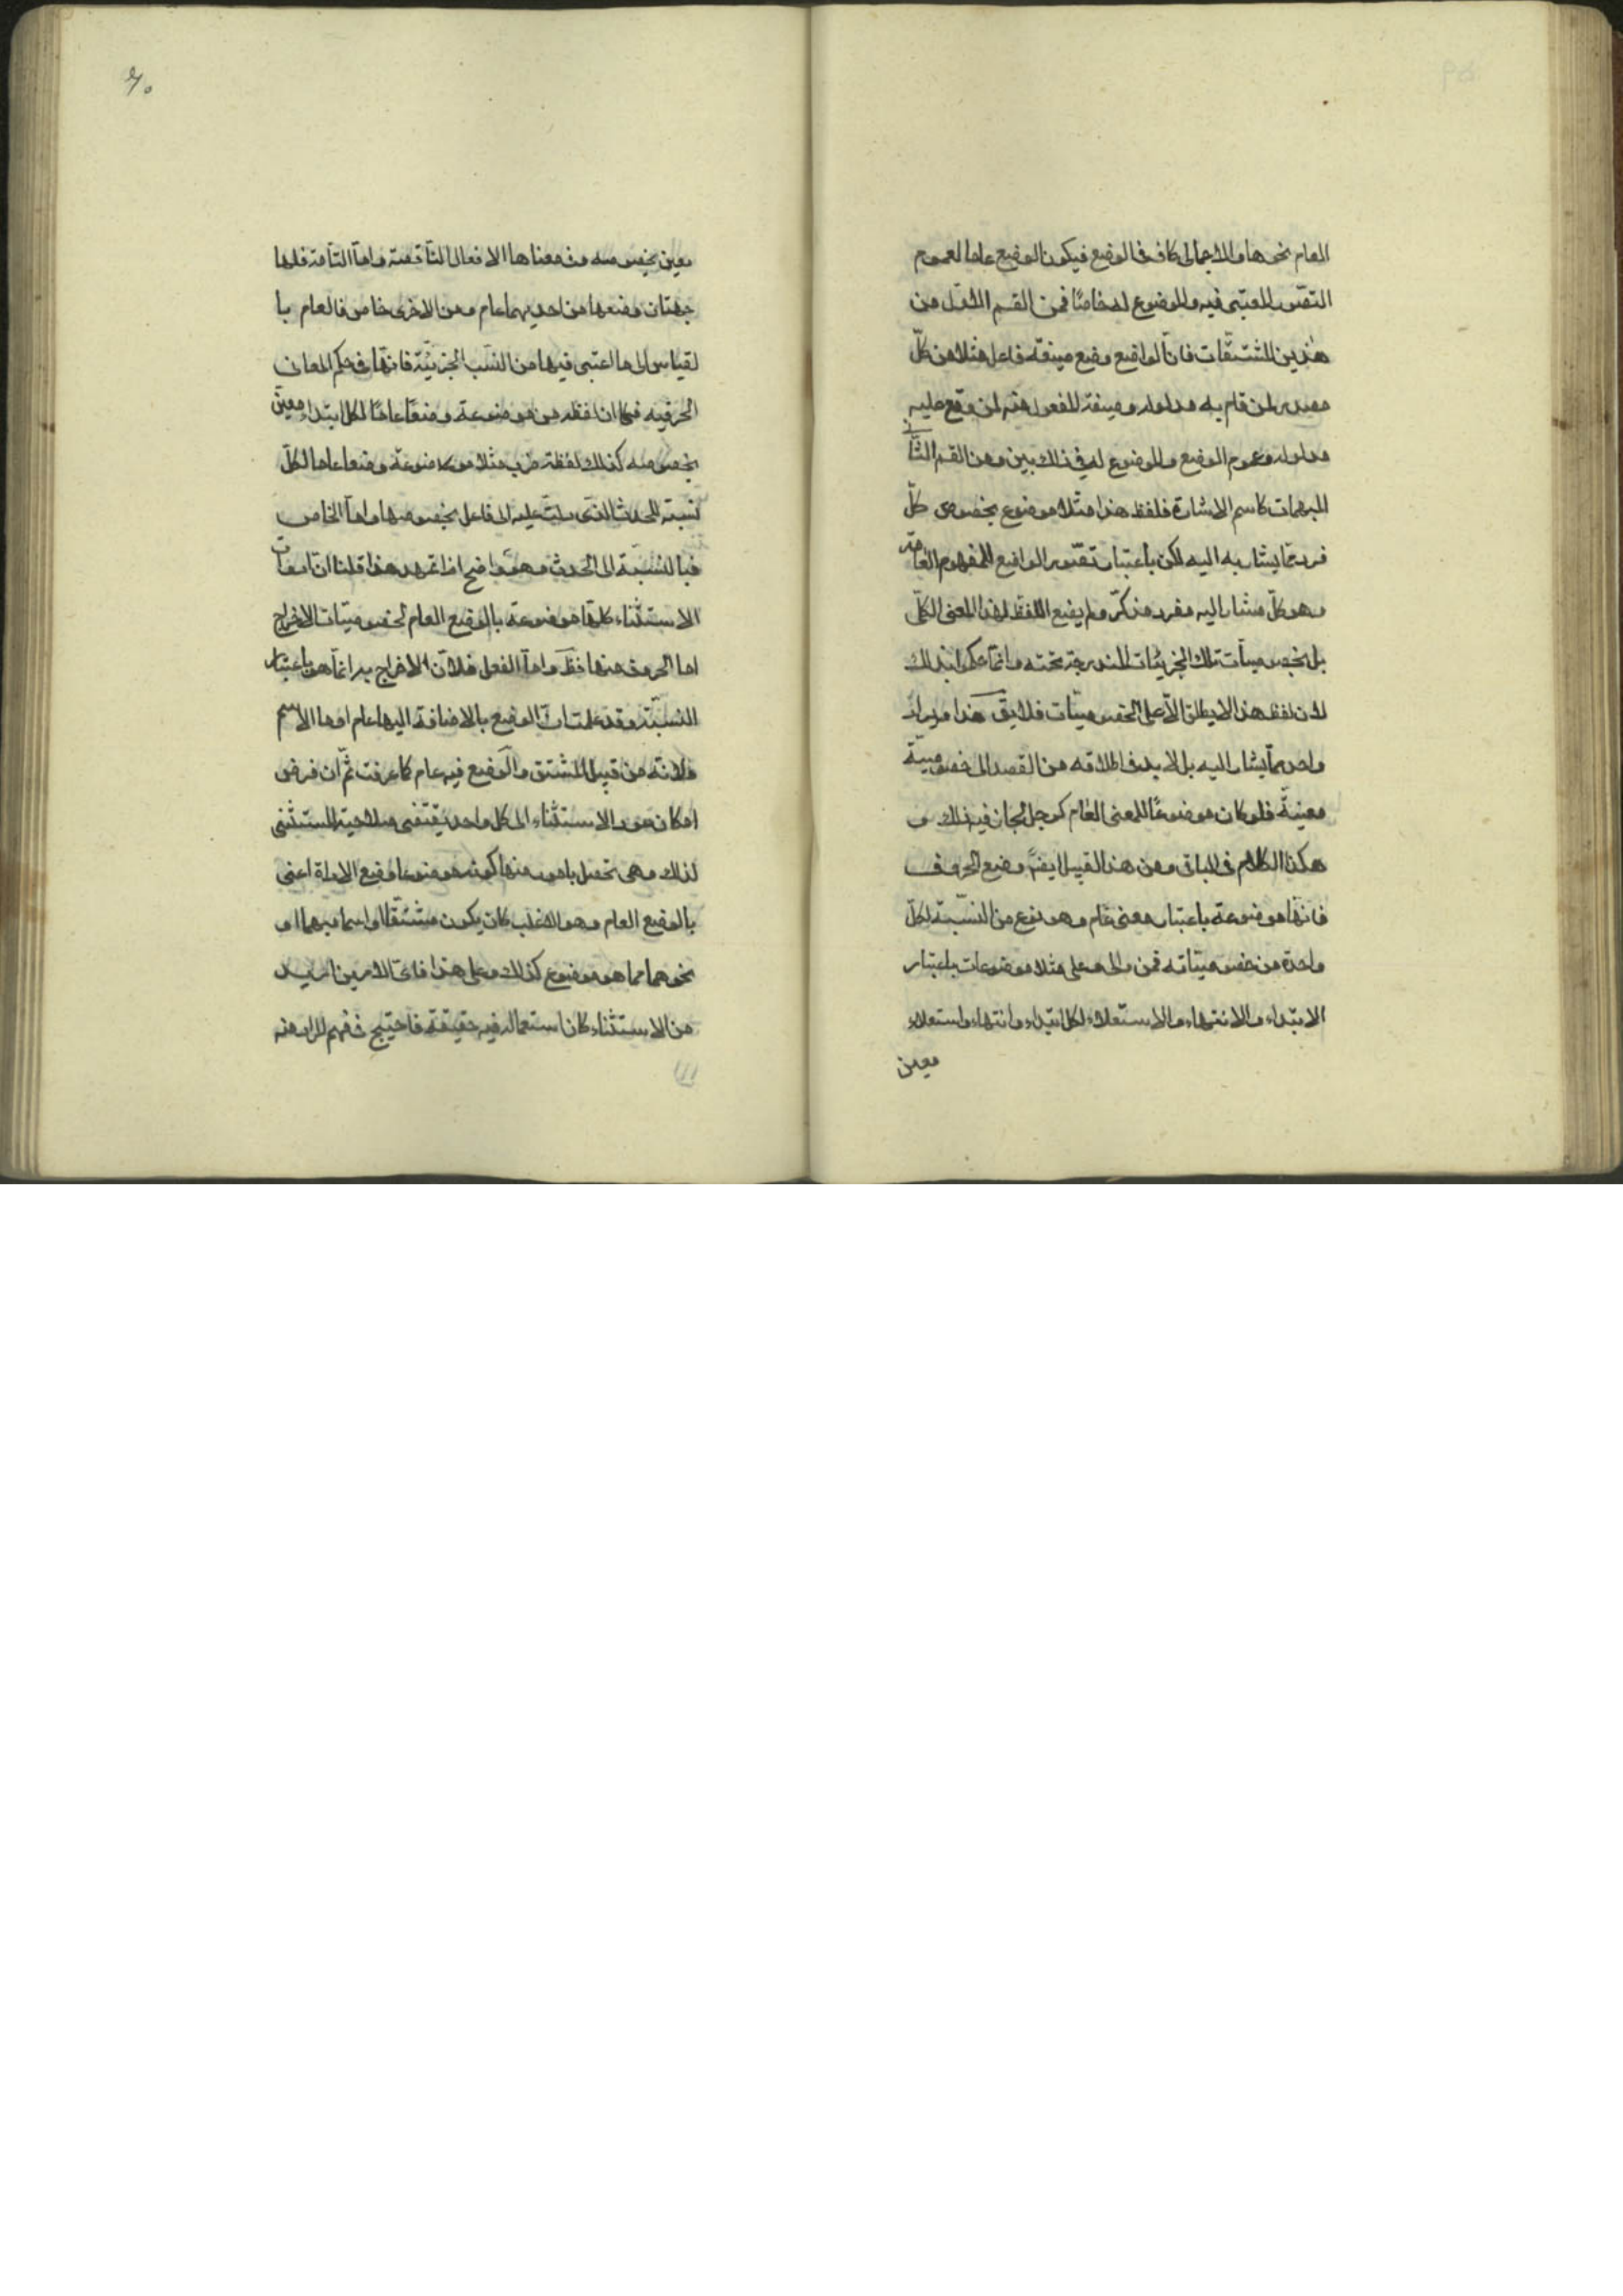 العام نحوها والاجمالى كاف فى الوضع فيكون الوضع عاما لعموم
التصور المعتبر فيه والموضوع له خاصّا فمن القسم الاوّل من
هذين المشتقّات فانّ الواضع وضع صيغة فاعل مثلا من كلّ
مصدر لمن قام به مدلوله وصيغة المفعول منه لمن وقع عليه
مدلوله وعموم الوضع والموضوع له فى ذلك بيّن ومن القسم الثانى
المبهمات كاسم الاشارة فلفظ هذا مثلا موضوع بخصوص كلّ
فرد ممّا يشار به اليه لكن باعتبار تصوّر الواضع للمفهوم العام
وهو كلّ مشار اليه مفرد مذكّر ولم يضع اللفظ لهذا المعنى الكلّى
بل بخصوصيّات تلك الجزئيّات المندرجة تحته وانّما حكموا بذلك
لان لفظ هذا لا يطلق الّا على الخصوصيّات فلا يق هذا ويراد
واحد ممّا يشار اليه بل لا بد فى اطلاقه من القصد الى خصوصيّة
معينة فلو كان موضوعًا للمعنى العام كرجل لجاز فيه ذلك و
هكذا الكلام فى الباقى ومن هذا القبيل ايضًا وضع الحروف
فانّها موضوعة باعتبار معنى عام وهو نوع من النسبة لكلّ
واحدة من خصوصيّاته فمن والى وعلى مثلا موضوعات باعتبار
الابتداء والانتهاء والاستعلاء لكل ابتداء وانتهاء واستعلاء
معين
٦٠
معين بخصوصه وفى معناها الافعال الناقصة وامّا التامّة فلها
جهتان وضعها من احديهما عام ومن الاخرى خاص فالعام با
لقياس الى ما اعتبر فيها من النسب الجزئيّة فانّها فى حكم المعانى
الحرفيه فكما ان لفظه من موضوعة وضعًا عامًا لكل ابتداء معيّن
بخصوصه كذلك لفظة ضرب مثلا موضوعة وضعا عاما لكلّ
نسبة للحدث الذى دلّت عليه الى فاعل بخصوصها وامّا الخاص
فبالنسبة الى الحدث وهو واضح اذا تمهد هذا قلنا انّ ادوات
الاستثناء كلّها موضوعة بالوضع العام لخصوصيّات الاخراج
اما الحروف منها فظ وامّا الفعل فلانّ الاخراج به انّما هو باعتبار
النسبة وقد علمت انّ الوضع بالاضافة اليها عام واما الاسم
فلانّه من قبيل المشتق والوضع فيه عام كما عرفت ثمّ ان فرض
امكان عود الاستثناء الى كل واحد يقتضى صلاحية المستثنى
لذلك وهى تحصل بامور منها كونه موضوعا وضع الاداة اعنى
بالوضع العام وهو الاغلب كان يكون مشتقّا او اسما مبهما او
نحوهما مما هو موضوع كذلك وعلى هذا فاىّ الامرين اريد
من الاستثناء كان استعماله فيه حقيقة فاحتيج فى فهم المراد منه